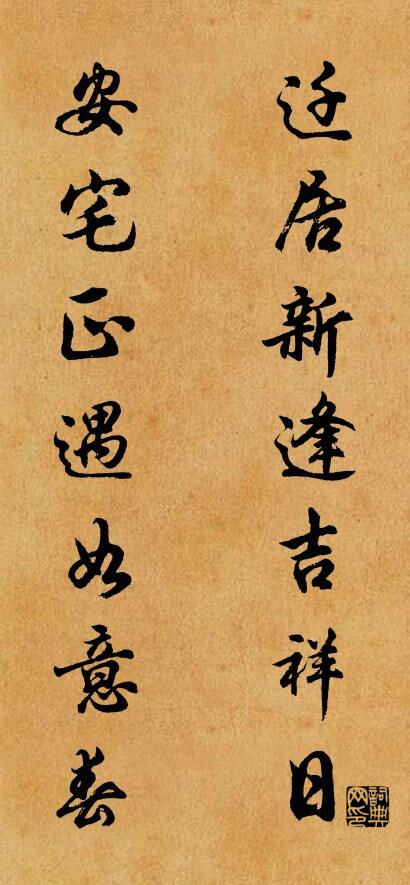 迁居新逢吉祥日
安宅正遇如意春
詞典網印